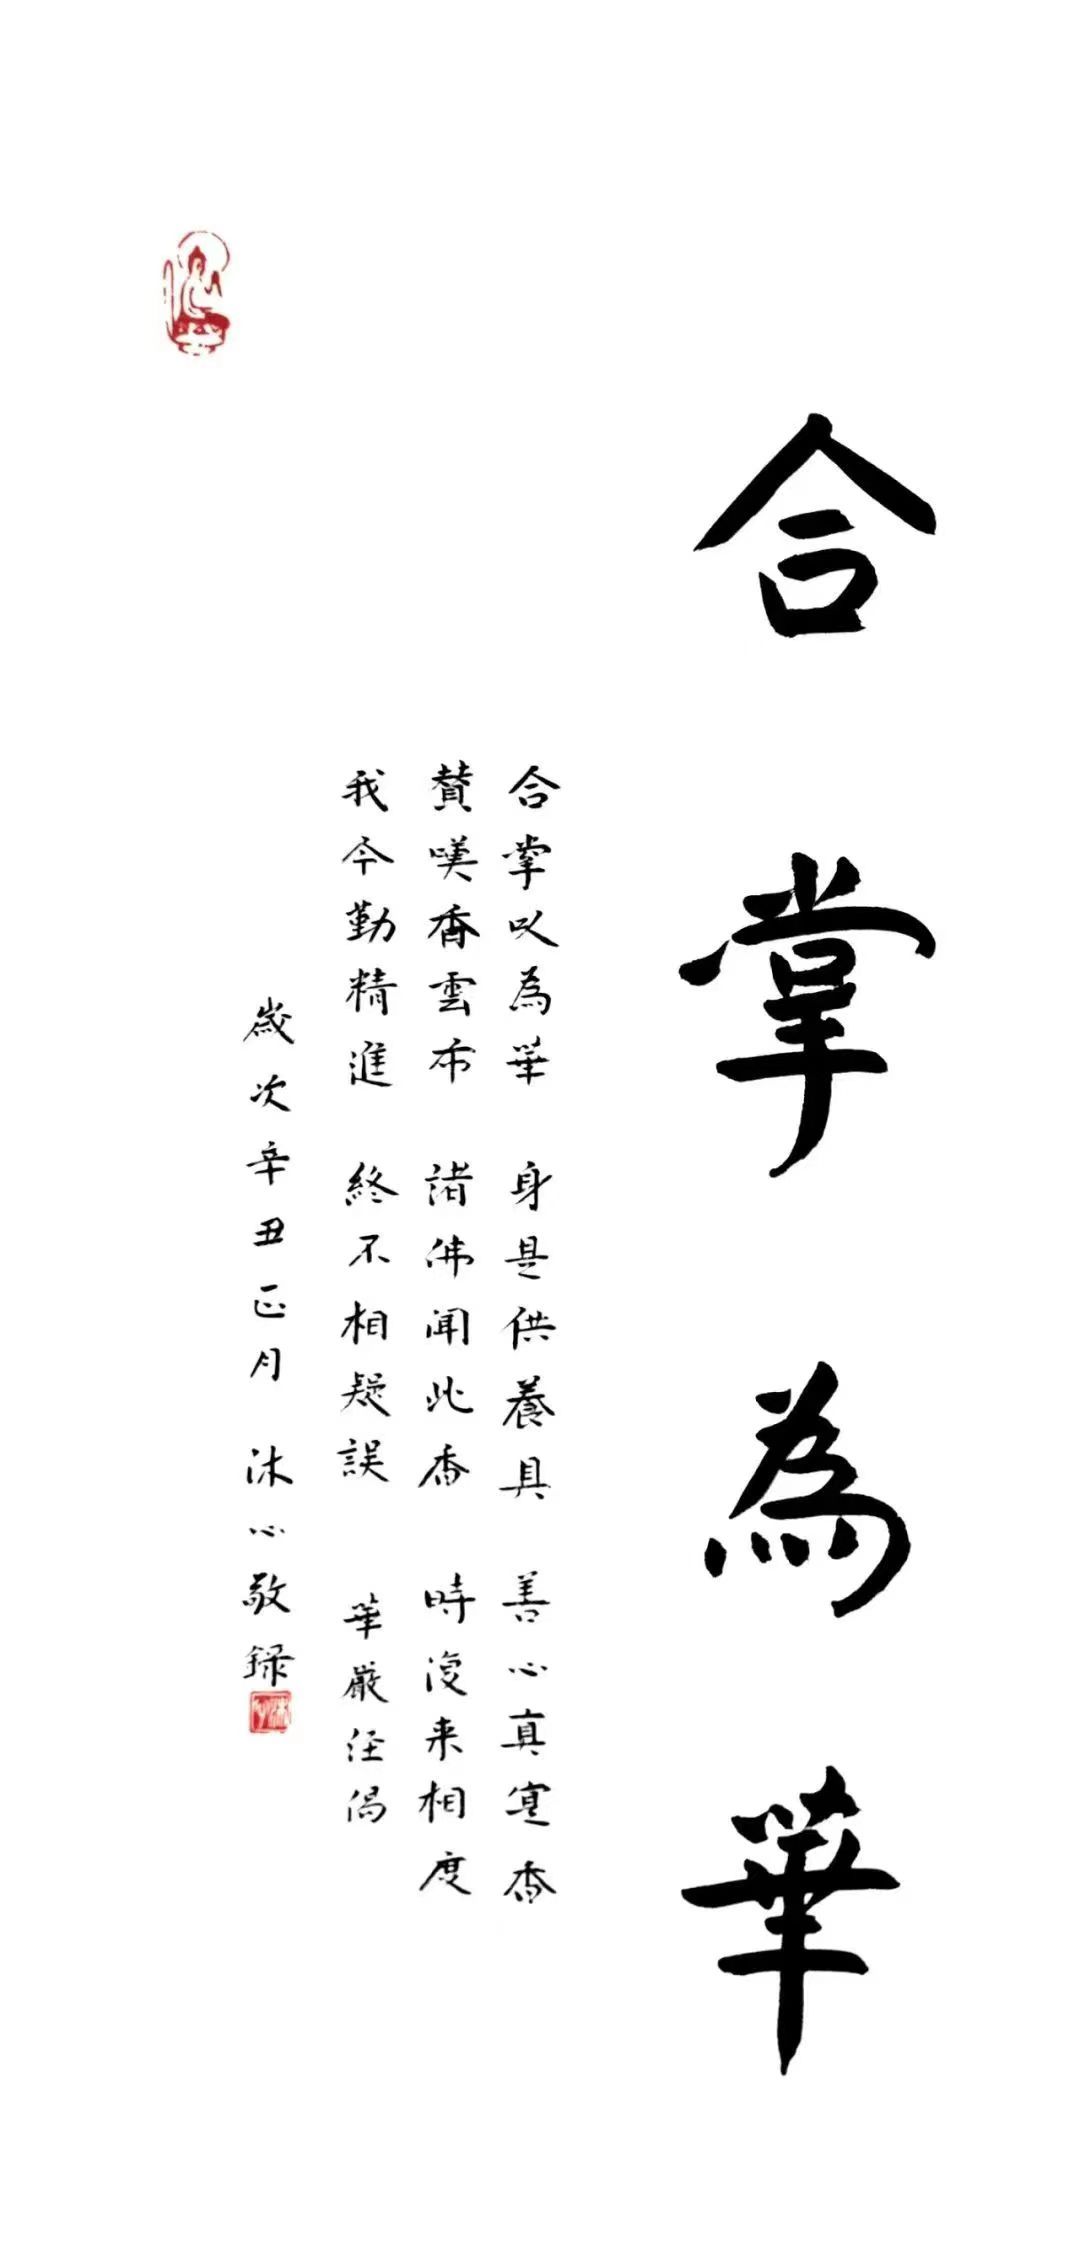 合掌為華
合掌以為華 身是供養具 善心真實香
賛嘆香雲布 諸佛聞此香 時復来相度
我今勤精進 終不相疑誤 華厳经偈
歲次辛丑正月 沐心敬録
沐心